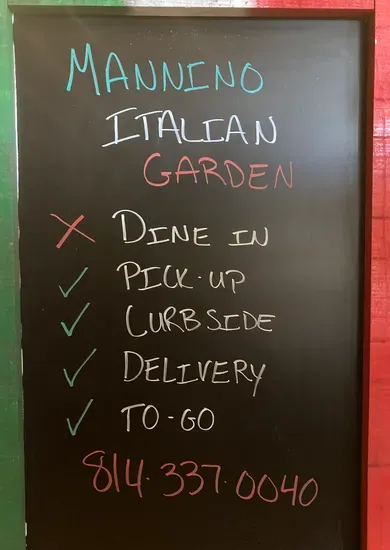 MANNINO
ITALIAN
GARDEN
✗ DINE IN
✓ PICK-UP
✓ CURBSIDE
✓ DELIVERY
✓ TO-GO
814.337.0040